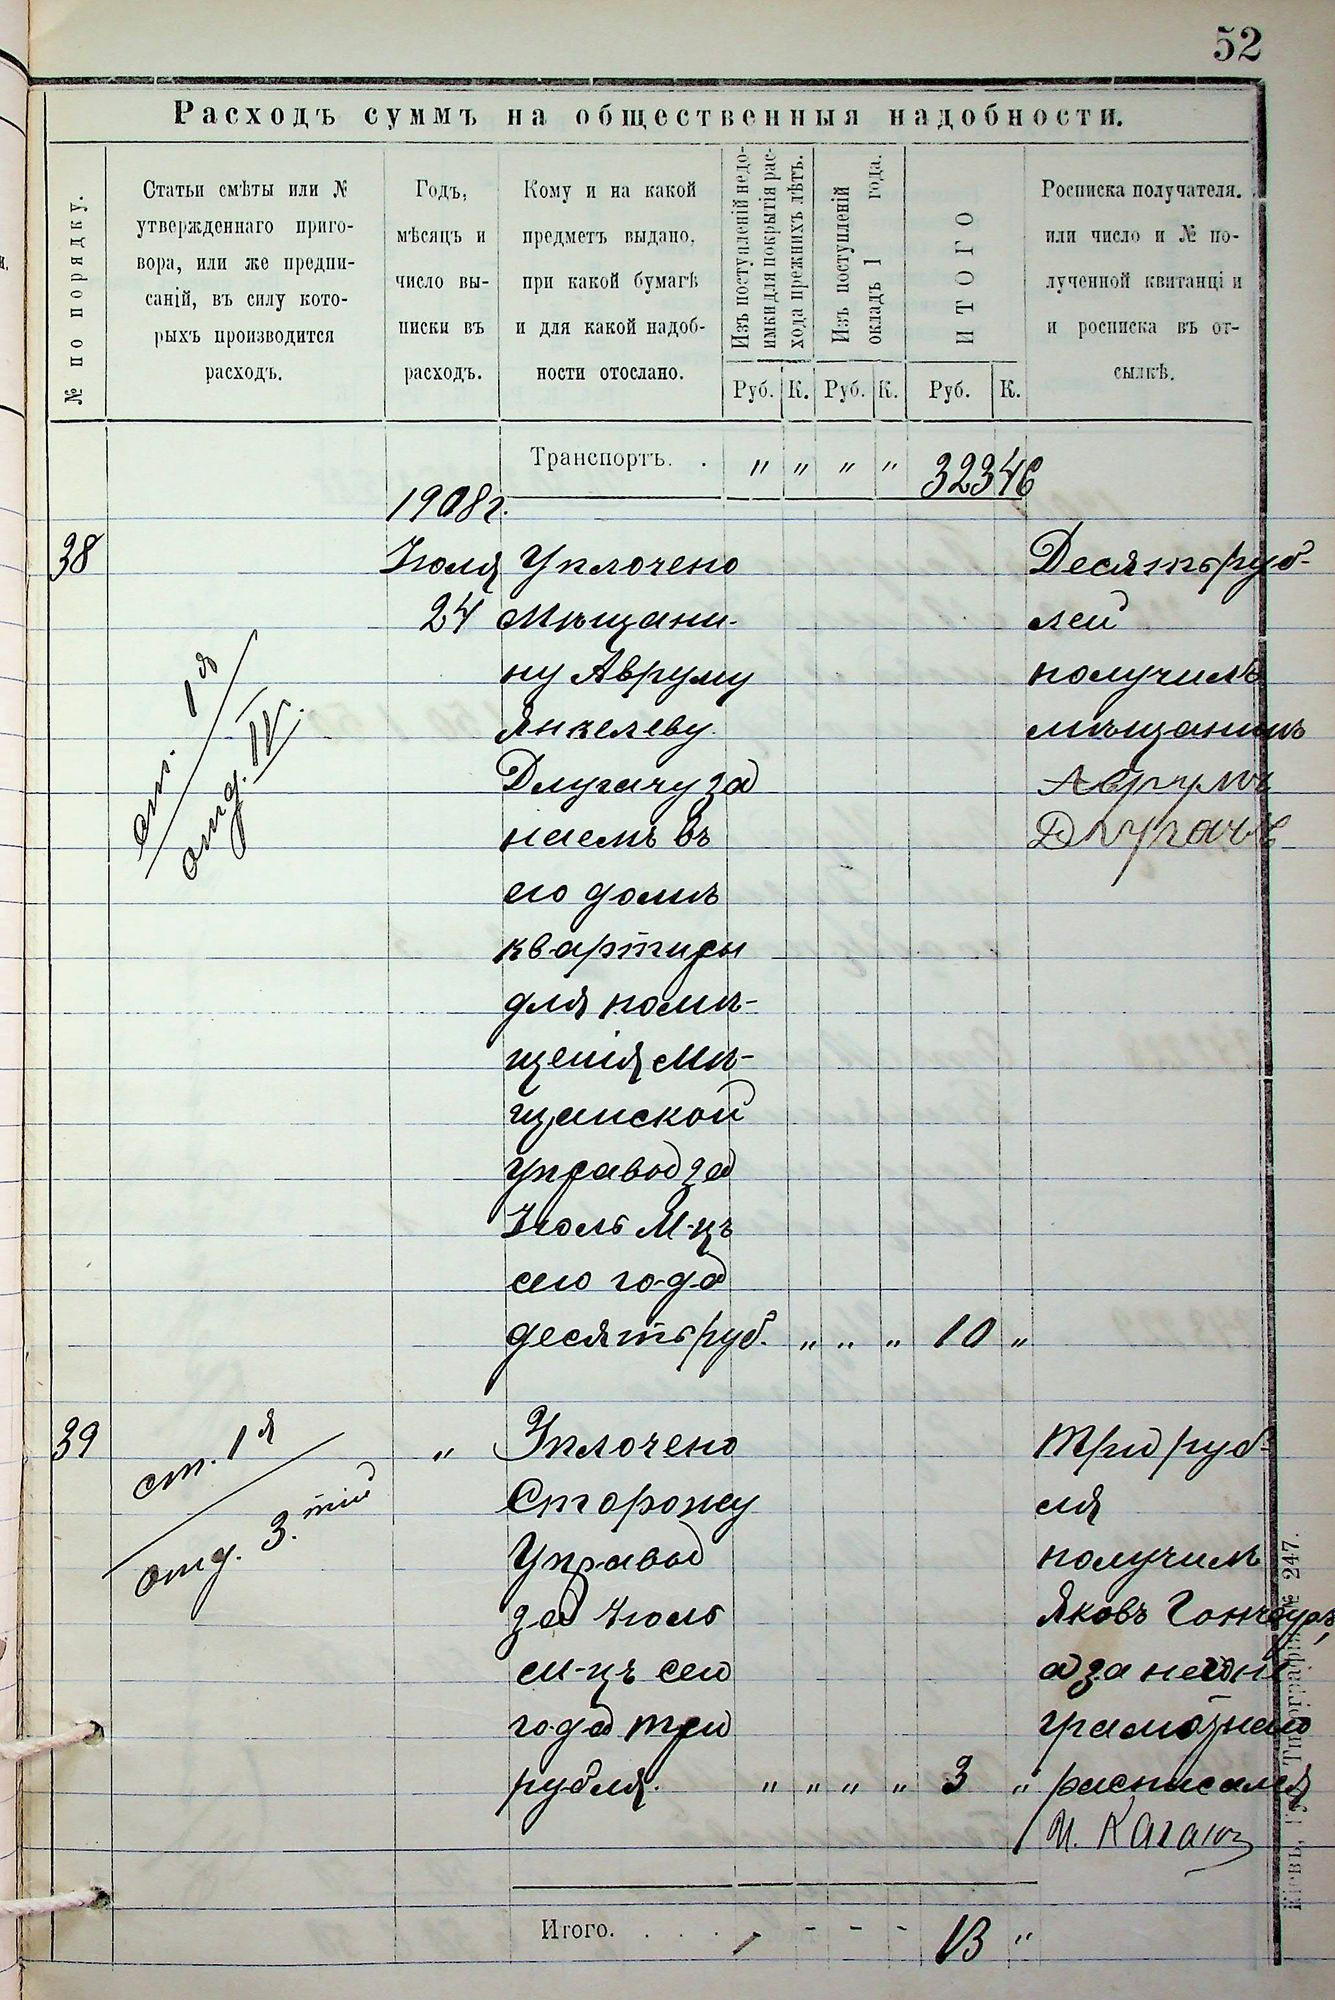 52
Расходъ суммъ на общественныя надобности.
№ по порядку.
Статьи смѣты или №
утвержденнаго приго-
вора, или же предпи-
саній, въ силу кото-
рыхъ производится
расходъ.
Годъ,
мѣсяцъ и
число вы-
писки въ
расходъ.
Кому и на какой
предметъ выдано,
при какой бумагѣ
и для какой надоб-
ности отослано.
Изъ поступленій недо-
имки для покрытія рас-
хода прежнихъ лѣтъ.
Изъ поступленій
окладъ 1 года.
ИТОГО
Росписка получателя.
или число и № по-
лученной квитанціи
и росписка въ от-
сылкѣ.
Руб. К. Руб. К. Руб. К.
Транспортъ. . " " " " 323 46
1908 г.
38
ст. 1я
отд. IV.
Іюля
24
Уплочено
Мѣщани-
ну Авруму
Янкелеву
Длугачу за
наемъ въ
его домѣ
квартиры
для помѣ-
щенія Мѣ-
щанской
Управы за
Іюль М-цъ
сего года
десять руб. " " " 10 "
Десять руб-
лей
получилъ
мѣщанинъ
Аврумъ
Длугачъ
39
ст. 1я
отд. 3.тій
"
Уплочено
Сторожу
Управы
за Іюль
м-цъ сего
года три
рубля. " " " " 3 "
Три руб-
ля
получилъ
Яковъ Гончаръ,
а за него не
грамотнаго
расписался
И. Каганъ
Итого. . . . - - - 13 "
Кіевъ, Типографія № 247.